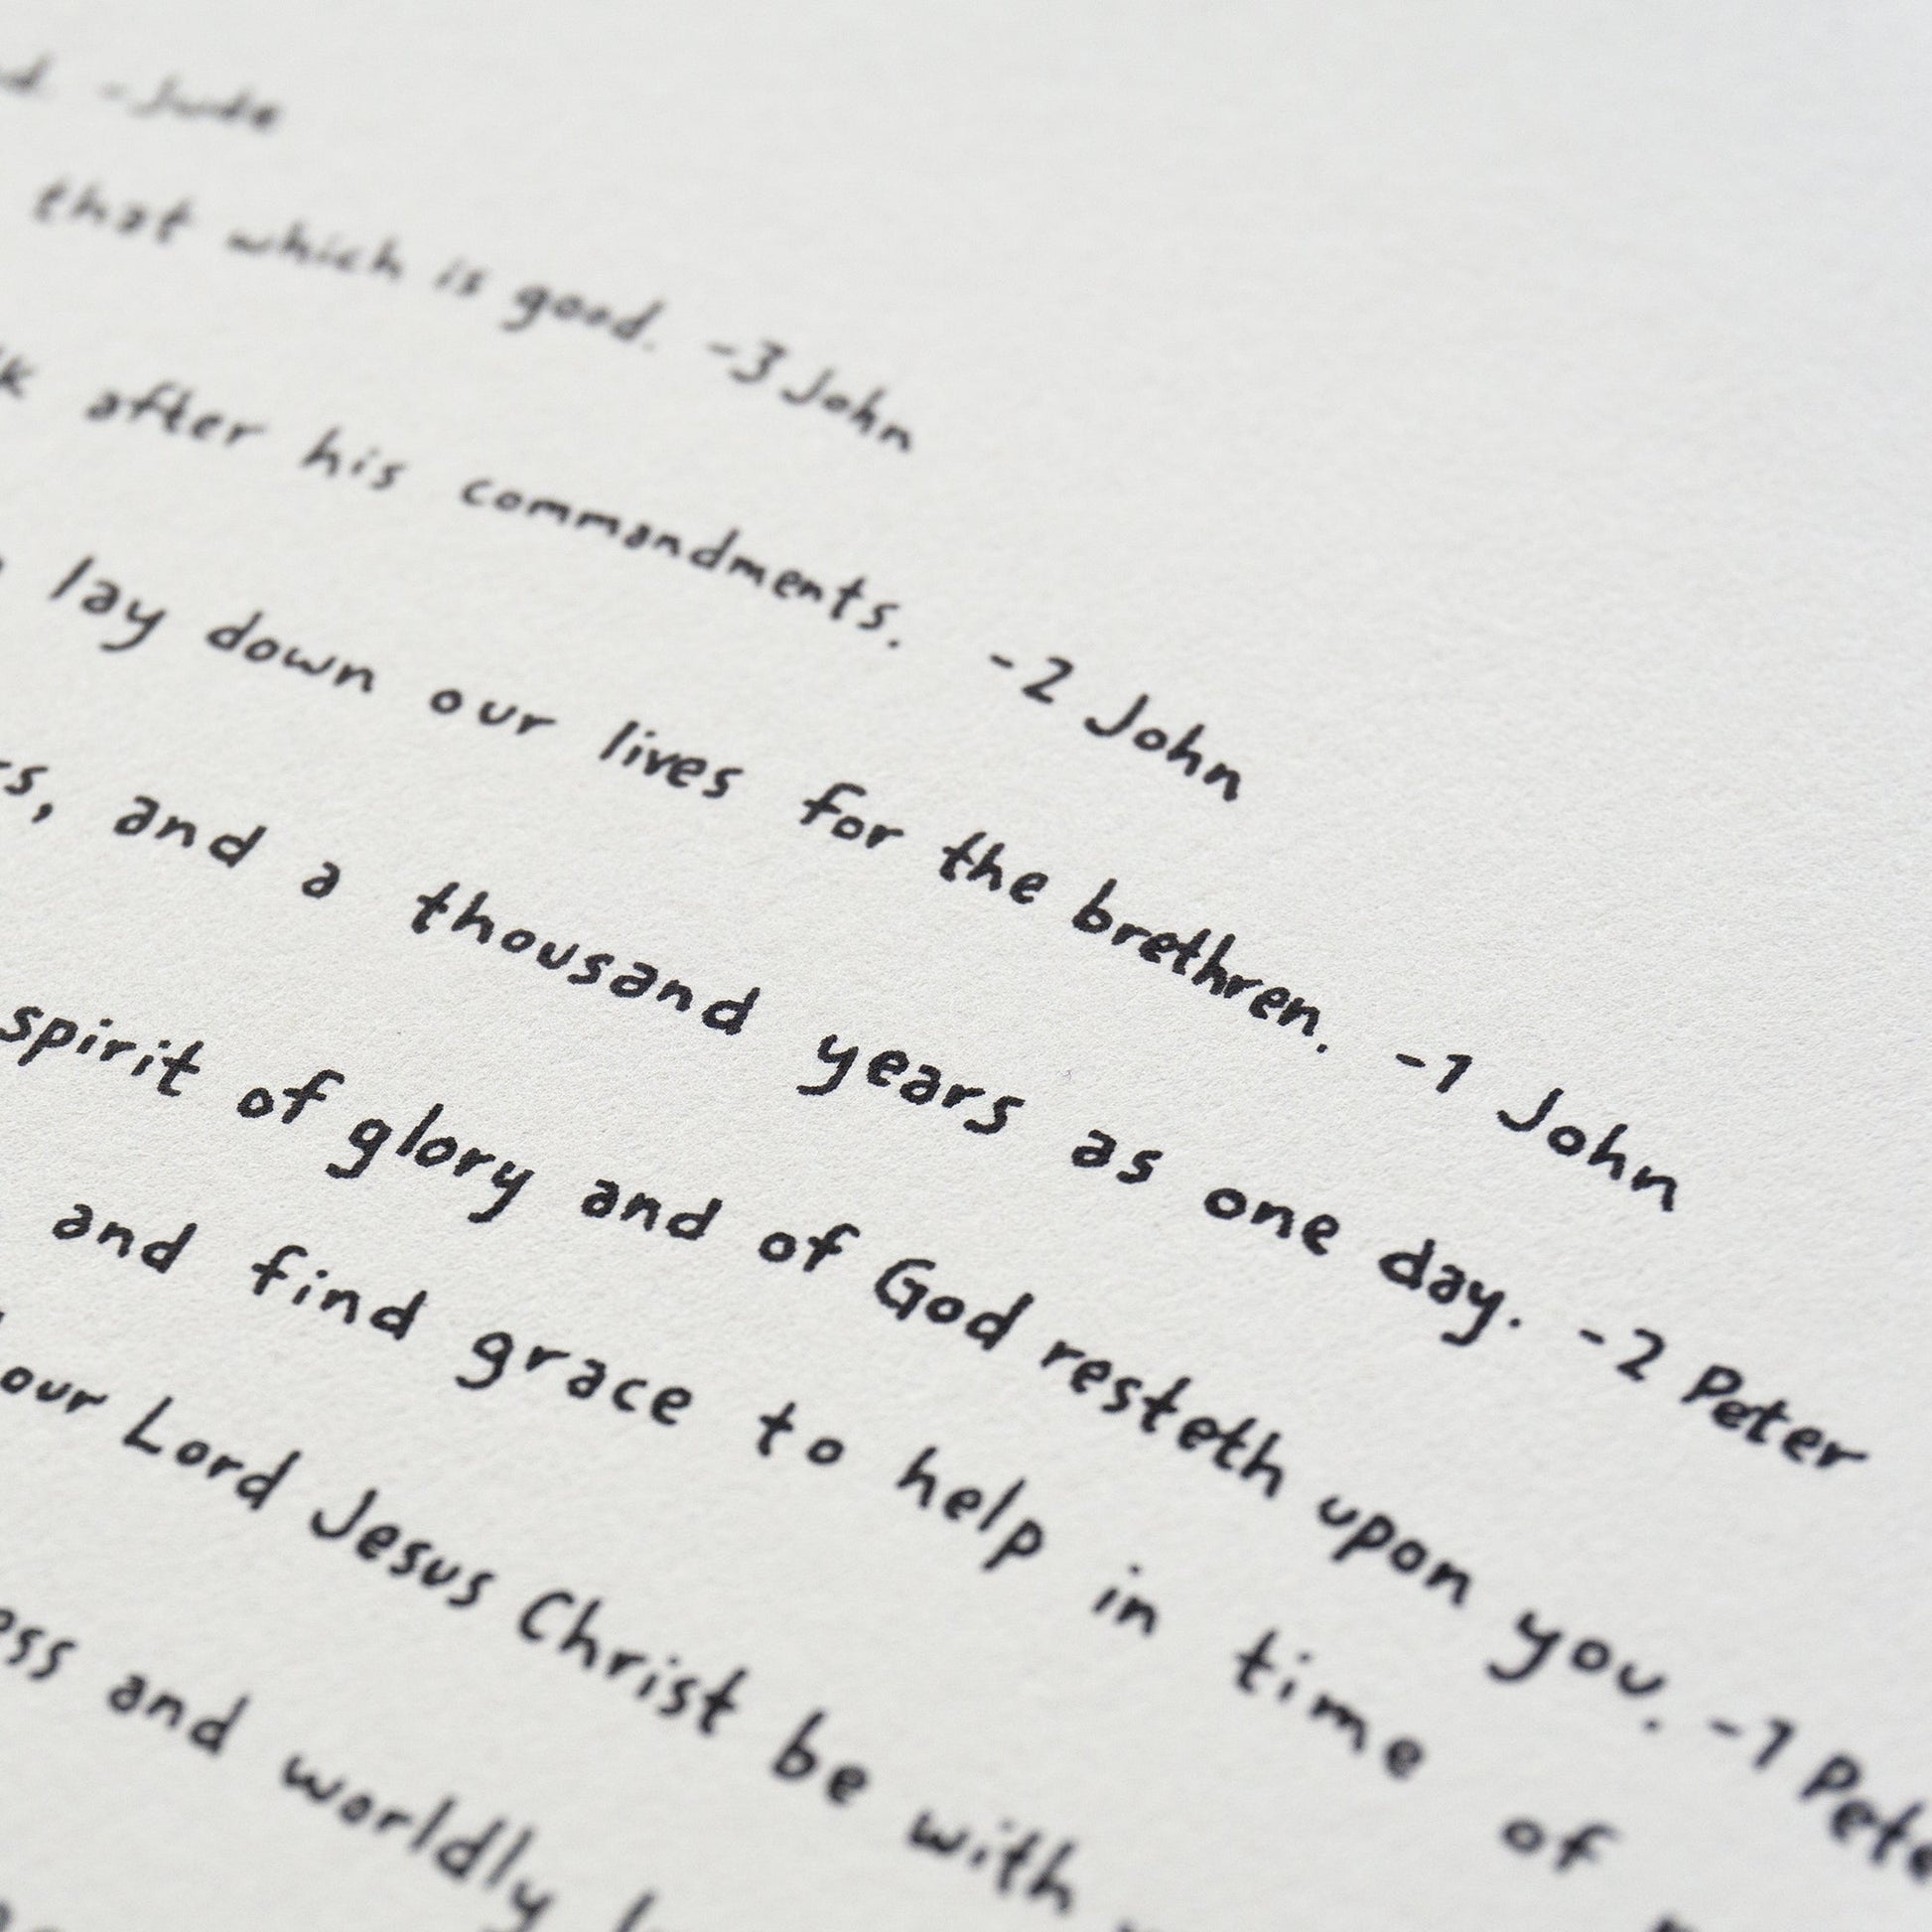 -Jude
that which is good. -3 John
after his commandments. -2 John
lay down our lives for the brethren. -1 John
and a thousand years as one day. -2 Peter
spirit of glory and of God resteth upon you. -1 Pete
and find grace to help in time of
our Lord Jesus Christ be with
and worldly